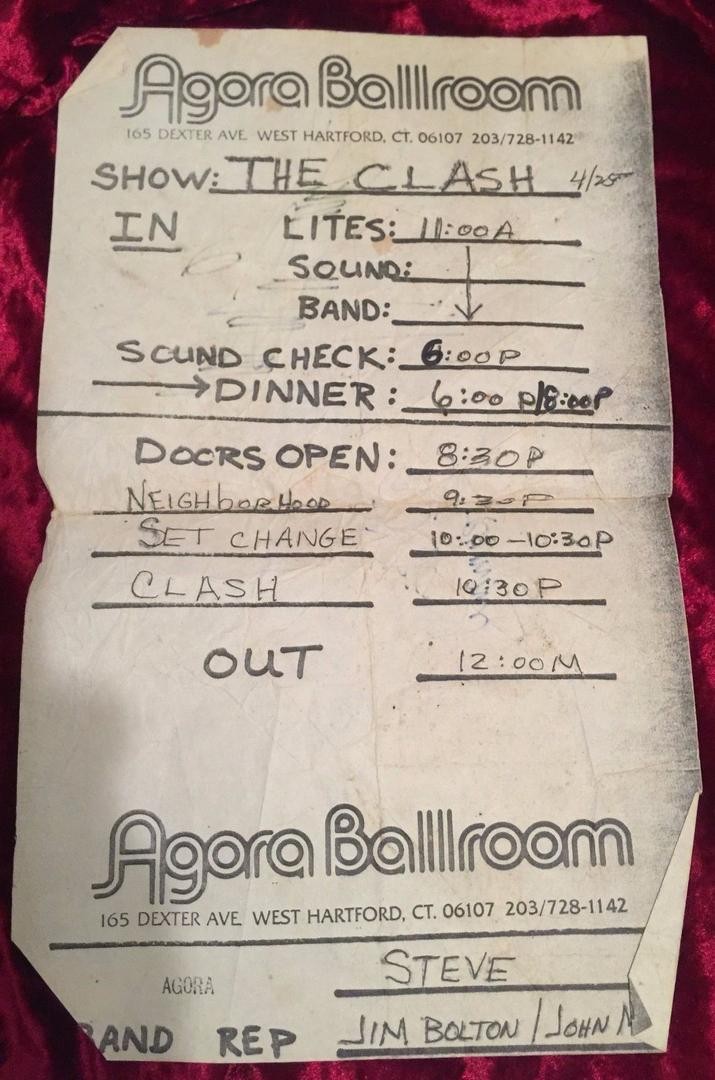 Agora Ballroom
165 DEXTER AVE. WEST HARTFORD, CT. 06107 203/728-1142
SHOW: THE CLASH 4/25
IN LITES: 11:00A
SOUND:
BAND:
SOUND CHECK: 6:00P
DINNER: 6:00 P/8:00P
DOORS OPEN: 8:30P
NEIGHborHOOD 9:30P
SET CHANGE 10:00-10:30P
CLASH 10:30P
OUT 12:00M
Agora Ballroom
165 DEXTER AVE. WEST HARTFORD, CT. 06107 203/728-1142
AGORA STEVE
BAND REP JIM BOLTON / JOHN